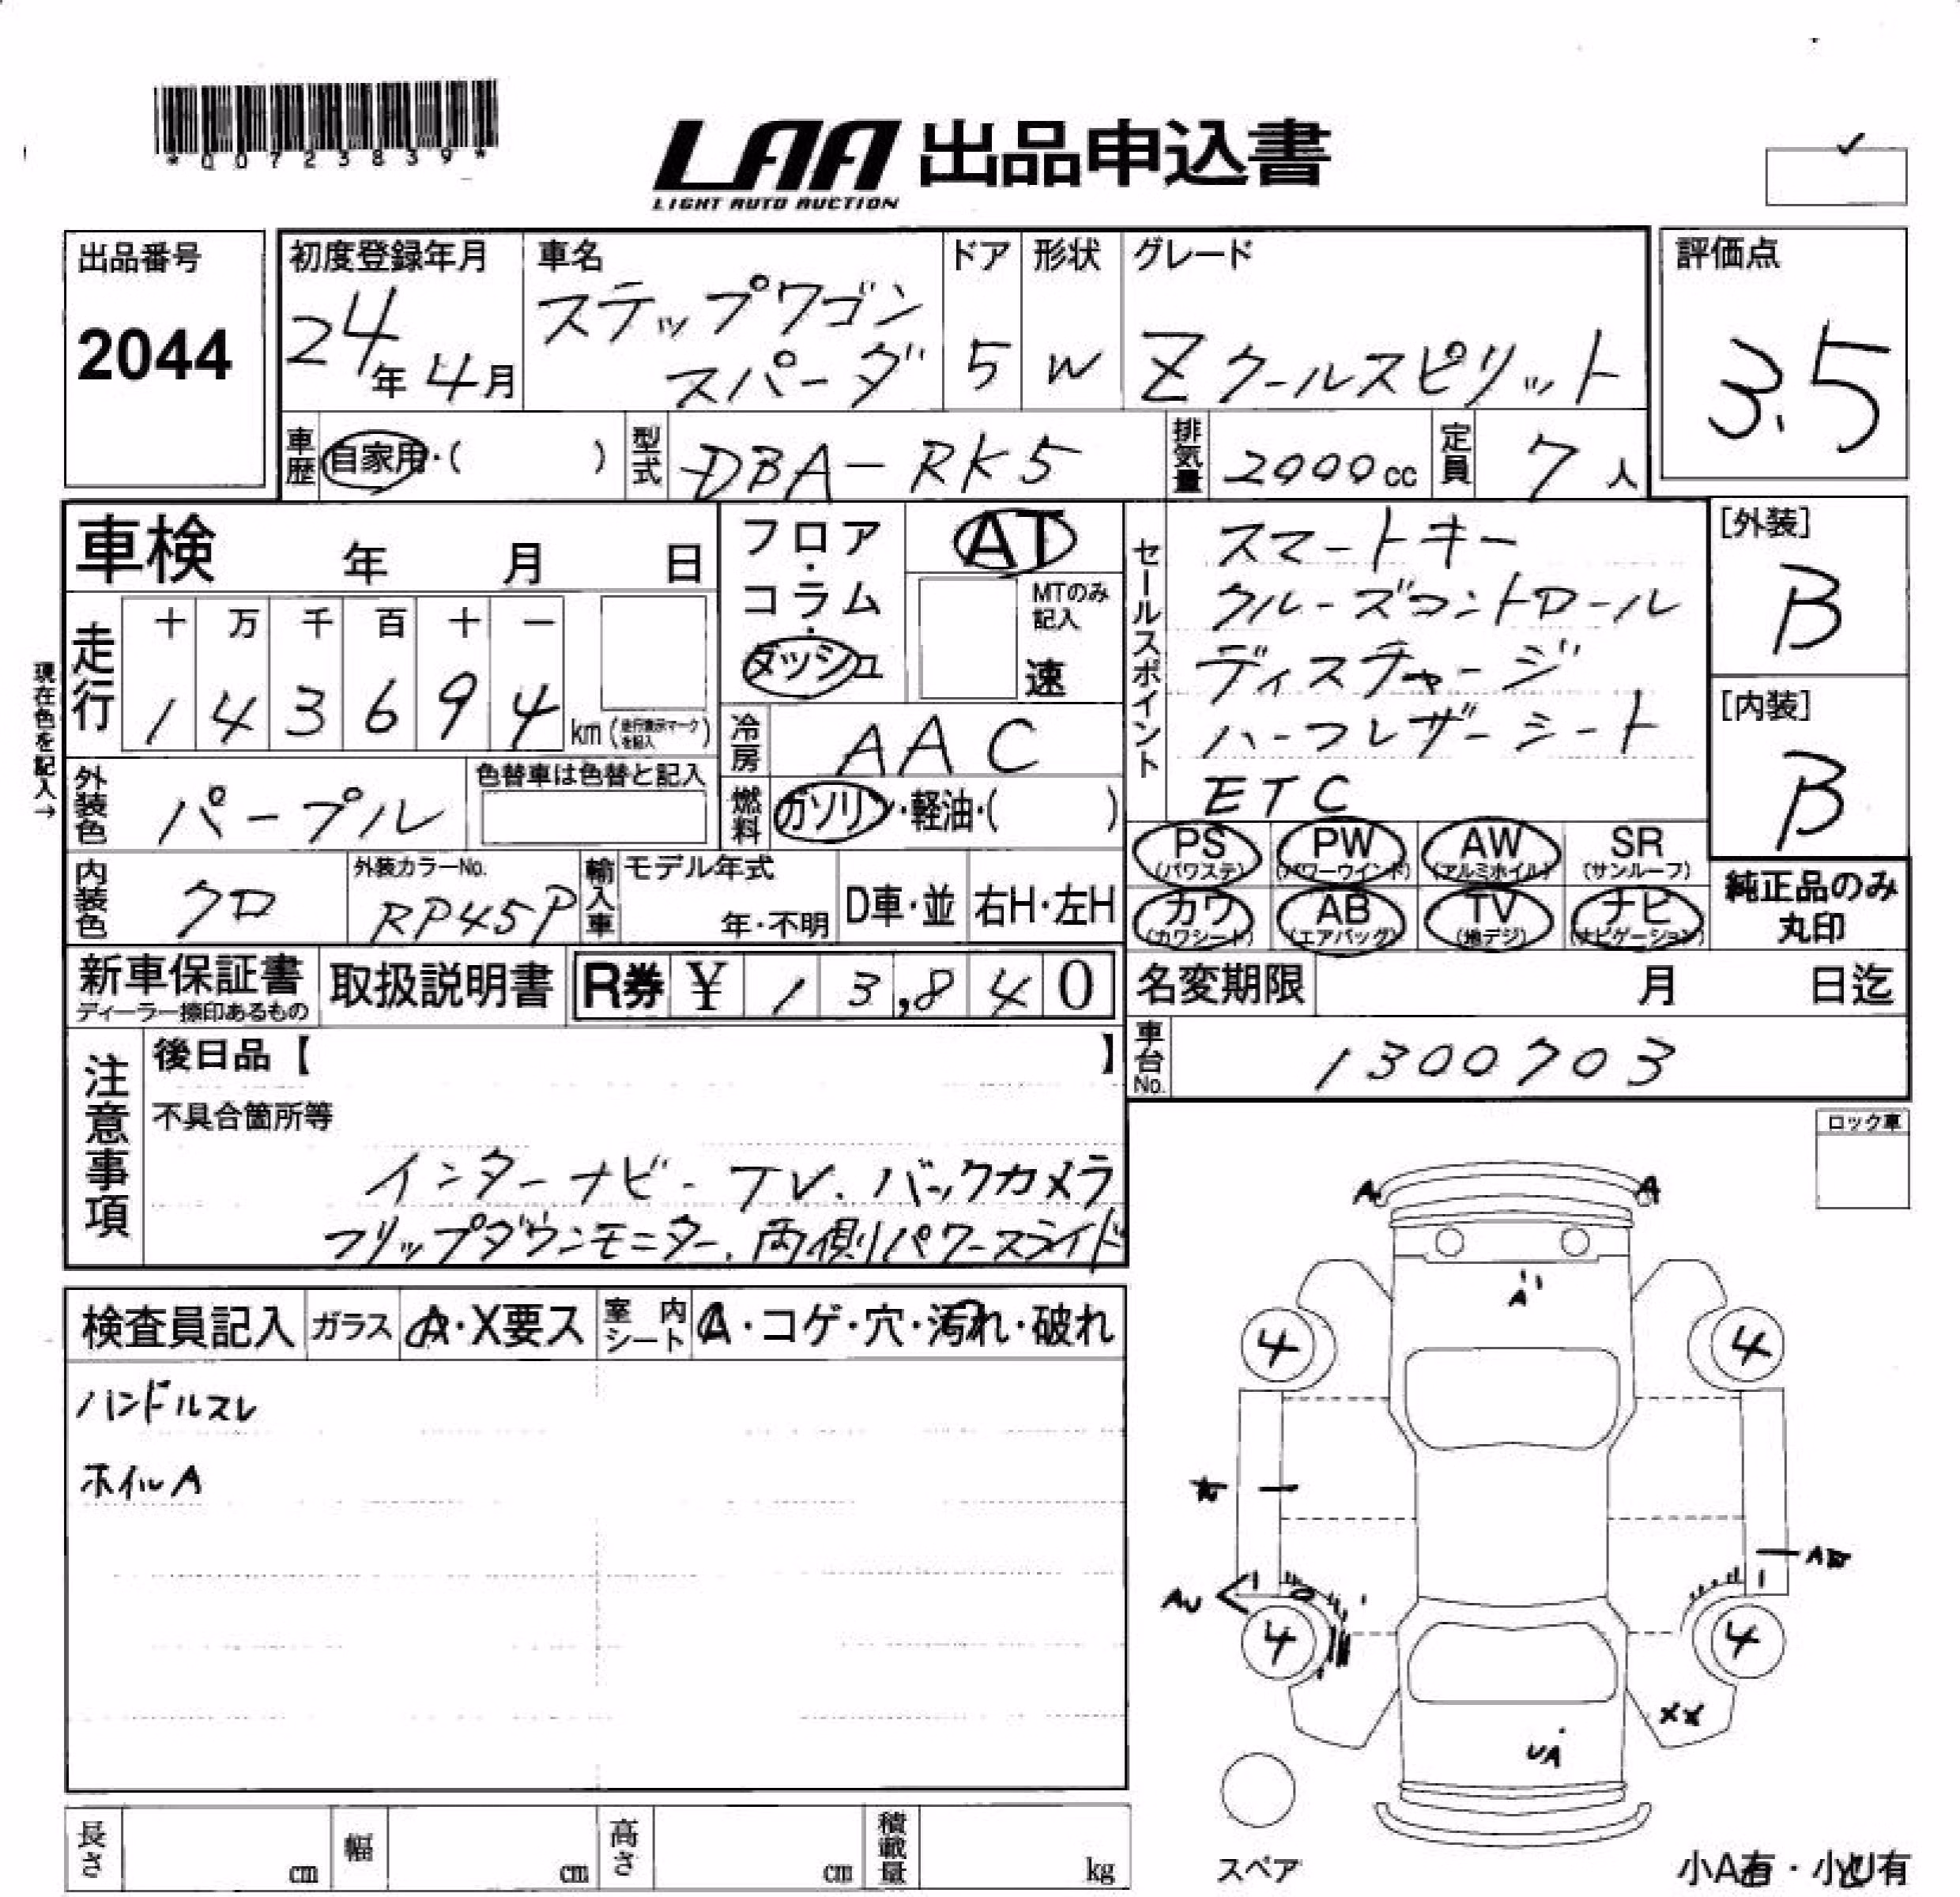 *00723839*
LAA 出品申込書
LIGHT AUTO AUCTION
出品番号
2044
初度登録年月
24年 4月
車名
ステップワゴン
スパーダ
ドア
5
形状
W
グレード
Zクールスピリット
評価点
3.5
車歴
自家用・( )
型式
DBA-RK5
排気量
2000cc
定員
7人
車検 年 月 日
走行
十 万 千 百 十 一
1 4 3 6 9 4 km
(走行表示マークを記入)
現在色を記入→
フロア・コラム・ダッシュ
AT
MTのみ記入
速
セールスポイント
スマートキー
クルーズコントロール
ディスチャージ
ハーフレザーシート
ETC
[外装]
B
[内装]
B
冷房
AAC
外装色
パープル
色替車は色替と記入
燃料
ガソリン・軽油・( )
PS (パワステ)
PW (パワーウインド)
AW (アルミホイル)
SR (サンルーフ)
カワ (カワシート)
AB (エアバッグ)
TV (地デジ)
ナビ (ナビゲーション)
純正品のみ
丸印
内装色
クロ
外装カラーNo.
RP45P
輸入車
モデル年式
年・不明
D車・並
右H・左H
新車保証書
ディーラー捺印あるもの
取扱説明書
R券 ¥ 13,840
名変期限 月 日迄
車台No.
1300703
注意事項
後日品【 】
不具合箇所等
インターナビ- TV. バックカメラ
フリップダウンモニター. 両側パワースライド
ロック車
検査員記入
ガラス
A・X要ス
室内シート
A・コゲ・穴・汚れ・破れ
ハンドルスレ
ホイルA
A A
A
4 4
AU
4 4
XX
UA
スペア
長さ cm
幅 cm
高さ cm
積載量 kg
小A有・小U有